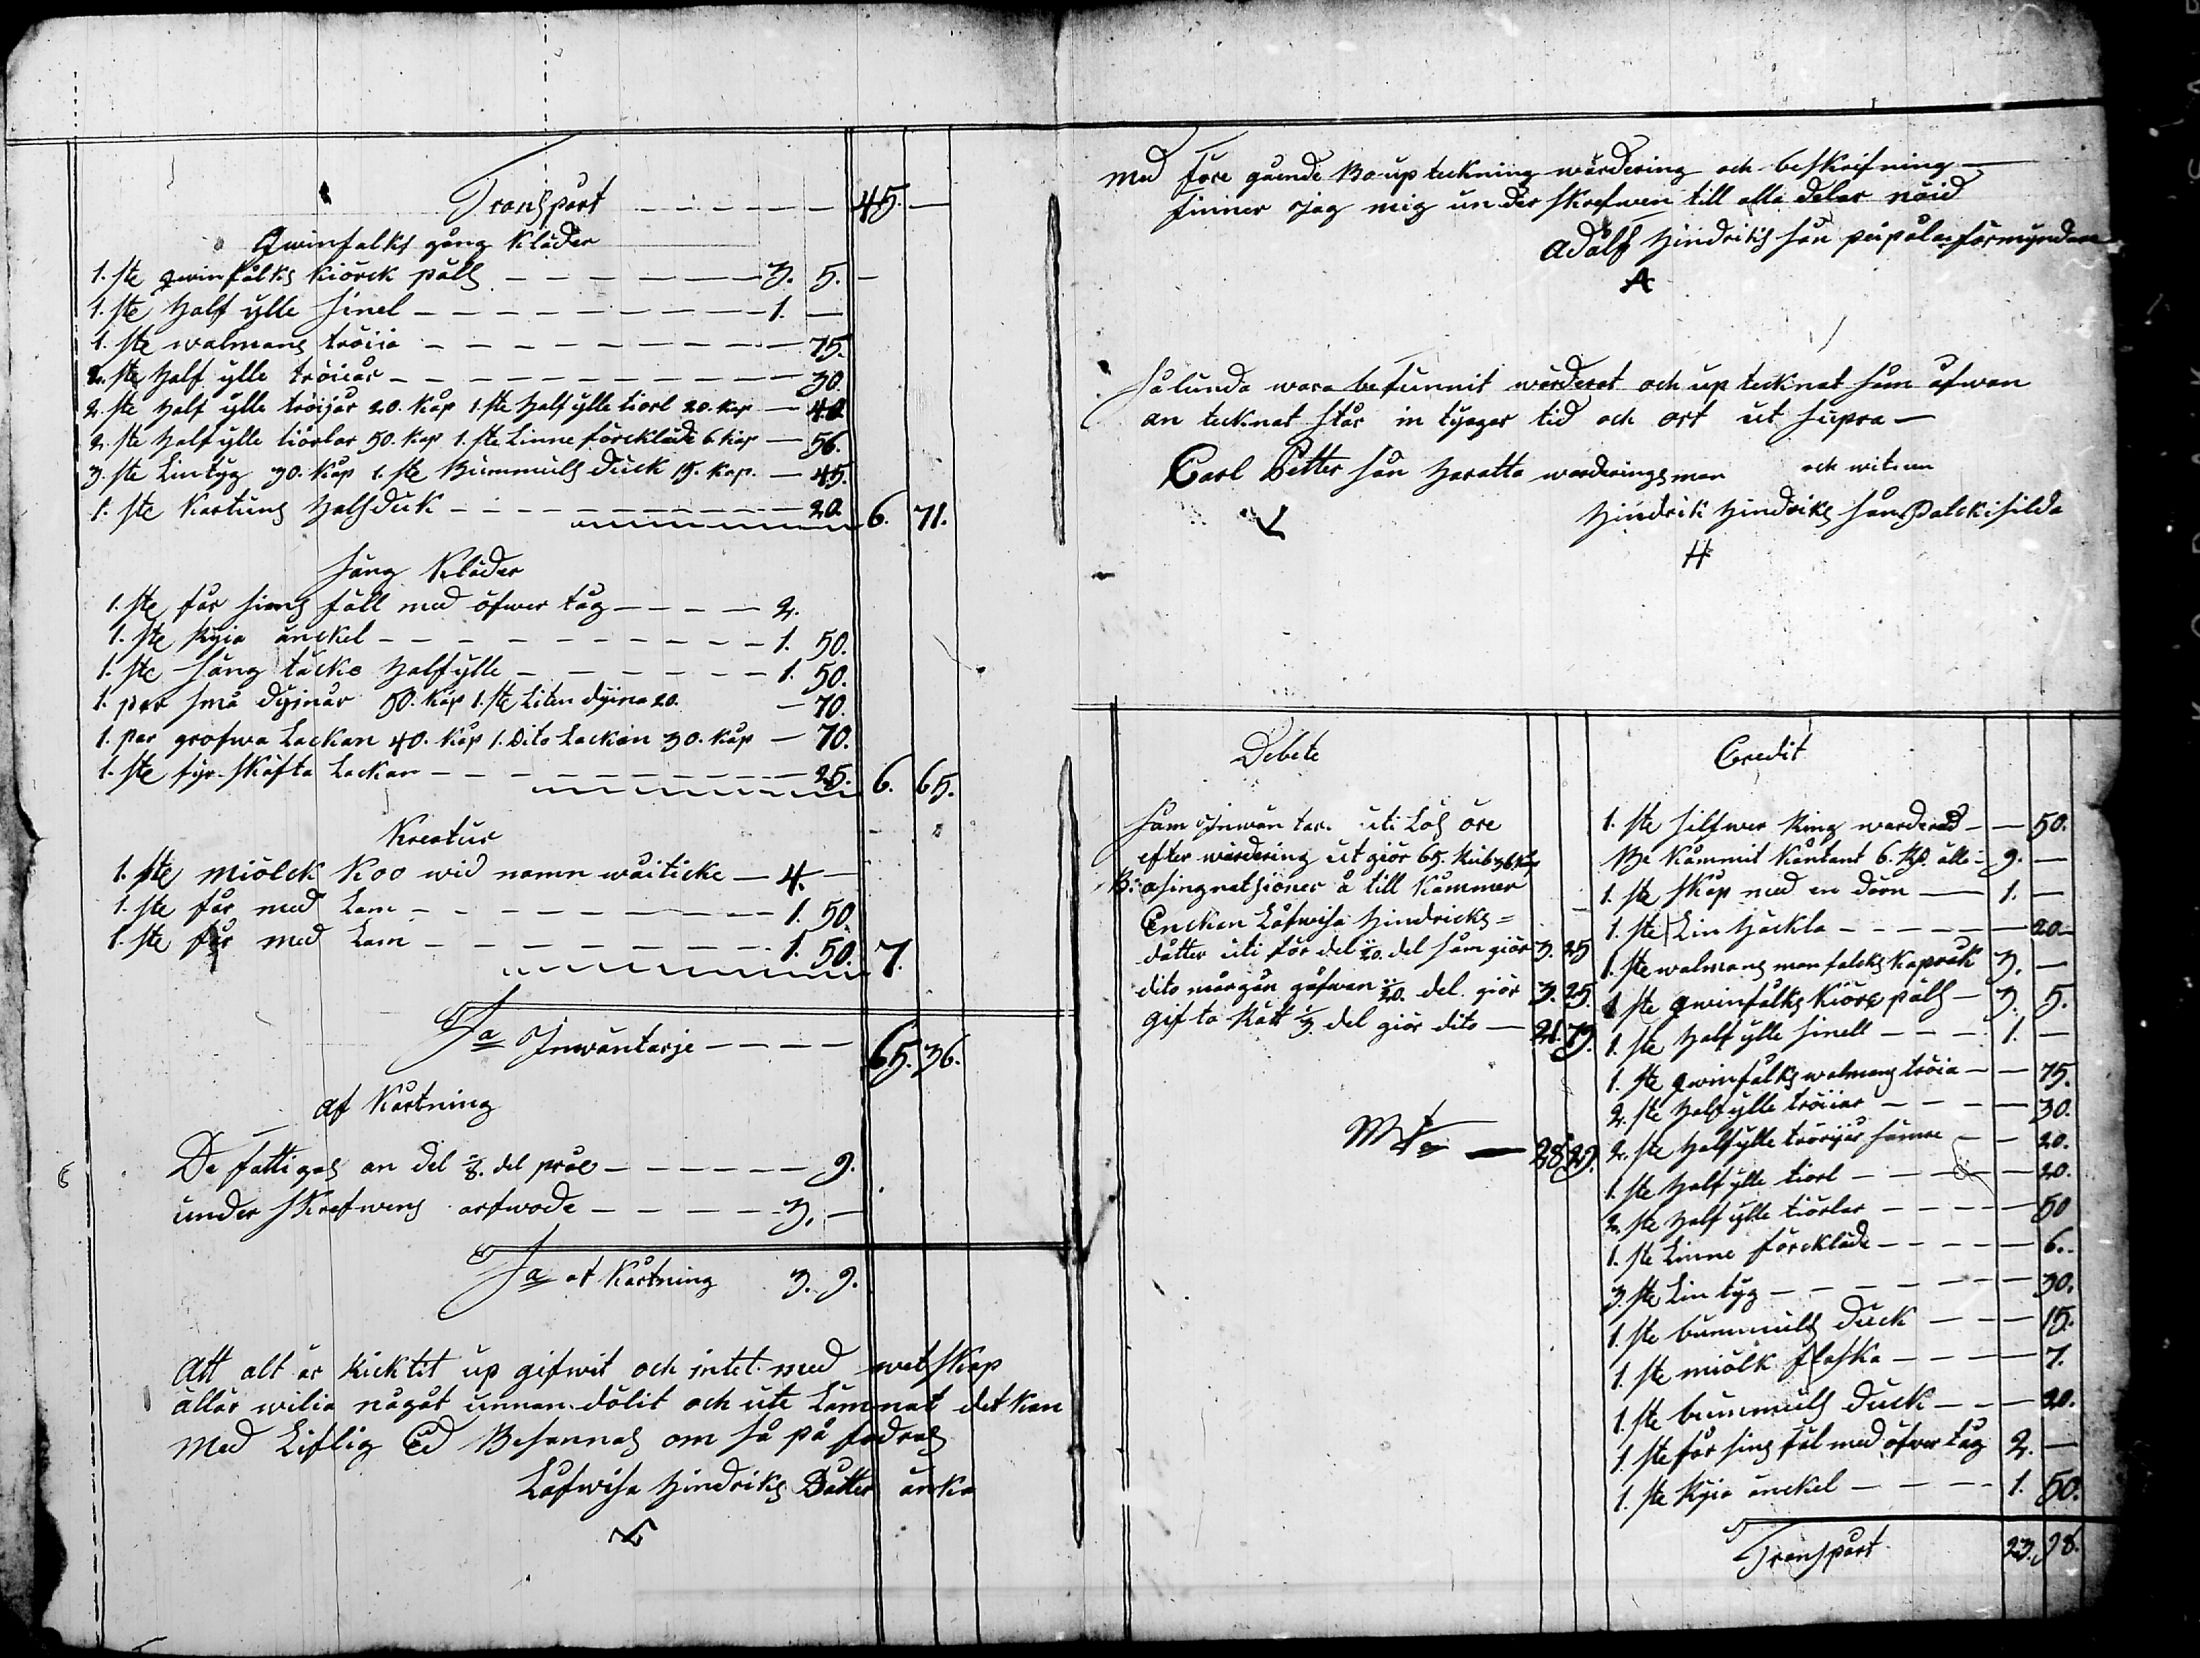 Transport - - - - - 45. -
Qwinfalks gång kläder
1. ste qwinfålks kiörck päls - - - - - - 3. 5. -
1. ste half ylle sinel - - - - - - - - - 1. -
1. ste walmans tröiia - - - - - - - - - 75.
2. ste half ylle tröiiar - - - - - - - - - 30.
2. ste half ylle tröijar 20. kåp 1. ste half ylle tiorl 20. kåp - 40
2. ste half ylle tiörlar 50. kåp 1. ste Linne förckläde 6. kåp - 56.
3. ste Lintyg 30. kåp 1. ste Bummuls duck 15. kåp. - 45.
1. ste kartuns halsduk - - - - - - - - 20. 6. 71.
säng kläder
1. ste får sins fäll med öfwer tåg - - - - 2.
1. ste Ryia änckel - - - - - - - - - 1. 50.
1. ste säng täcke halfylle - - - - - - 1. 50.
1. par små dyinår 50. kåp 1. ste Liten dyina 20. - 70.
1. par grofwa Lackan 40. kåp 1. Dito Lackan 30. kåp - 70.
1. ste fyr skäfta Lackan - - - - - - - - 25. 6. 65.
Kreatur
1. ste miölck Koo wid namn wäiticke - 4. -
1. ste får med Lam - - - - - - - - 1. 50.
1. ste får med Lam - - - - - - - - 1. 50. 7.
Sa Inwäntarje - - - - 65. 36.
af Kortning
De fattigas an del 1/8. del pröc - - - - - - 9.
under skrefwens arfwode - - - - - 3. -
Sa af Kortning 3. 9.
Att alt är Ricktit up gifwit och intet med wetskap
ällär wilia någåt unnan dölit och ute Lämnat det kan
Med Liflig Ed Besannas om så på fodras
Låfwisa Hindriks Dåtter änka
med före gående Bo up teckning wärdering och beskrifning
finner Jag mig under skrefwen till alla delar nöid
Adålf Hindriks sån pupålar förmyndare
A
Sålunda wara befunnit wärderat och up tecknat såm åfwan
an tecknat står in tygar tid och ort ut supra -
Carl Petter sån Haratta warderingsman och witnen
Hindrik Hindriks sån Palckisilda
H
Debete
Såm Inwäntar. uti Lös öre
efter wärdering ut giör 65. Rub 36 kåp
B: asingnatsioner å till kåmmer
Enckan Låfwisa Hindricks=
dåtter uti för del 1/20. del såm giör 3. 25
dito mårgån gåfwan 1/20. del. giör 3. 25.
gifta Rätt 1/3. del giör dito - 21. 79.
28 29.
Credit
1. ste silfwer Ring warderad - - 50.
Be kåmmit kåntant 6. Rd. älle - 9. -
1. ste skåp med en dörn - 1. -
1. ste Lin häckla - - - - - 20 -
1. ste walmans manfalcks kapråk 3. -
1. ste qwinfålks kiörc päls - 3. 5.
1. ste half ylle sinell - - - 1. -
1. ste qwinfålks walmans tröia - - 75.
2. ste half ylle tröiiar - - - - 30.
2. ste halfylle tröiijar sämre - - 20.
1. ste half ylle tiorl - - - - - 20.
2. ste half ylle tiörlar - - - - - 50
1. ste Linne förckläde - - - - - 6. -
3. ste Lin tyg - - - - - - - 30.
1. ste bummuls duck - - - 15.
1. ste miölk flaska - - - - 7.
1. ste bummuls duck - - - 20.
1. ste får sins fäl med öfwer tåg 2. -
1. ste Ryia änckel - - - - 1. 50.
Transport 23. 98.